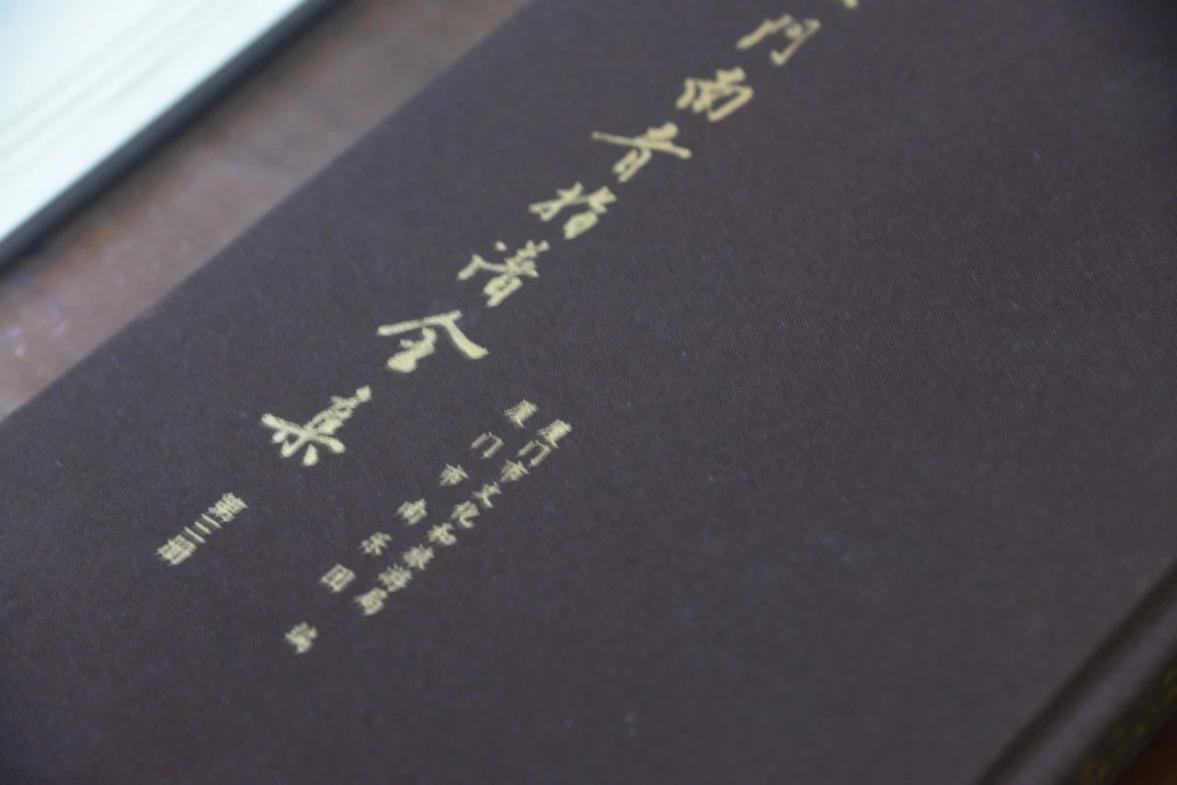 门南音指谱全集
第三
厦门市文化和旅游局
厦门市南乐团 编